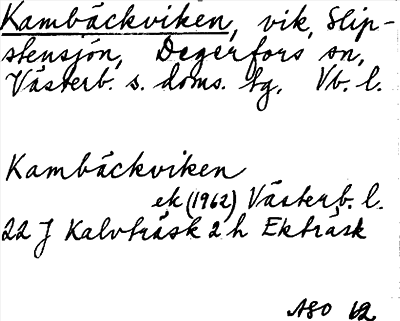 Kambäckviken, vik, Slip-
stensjön, Degerfors sn,
Västerb. s. doms. tg. Vb. l.
Kambäckviken
ek (1962) Västerb. l.
22 J Kalvträsk 2 h Ekträsk
ASO 62